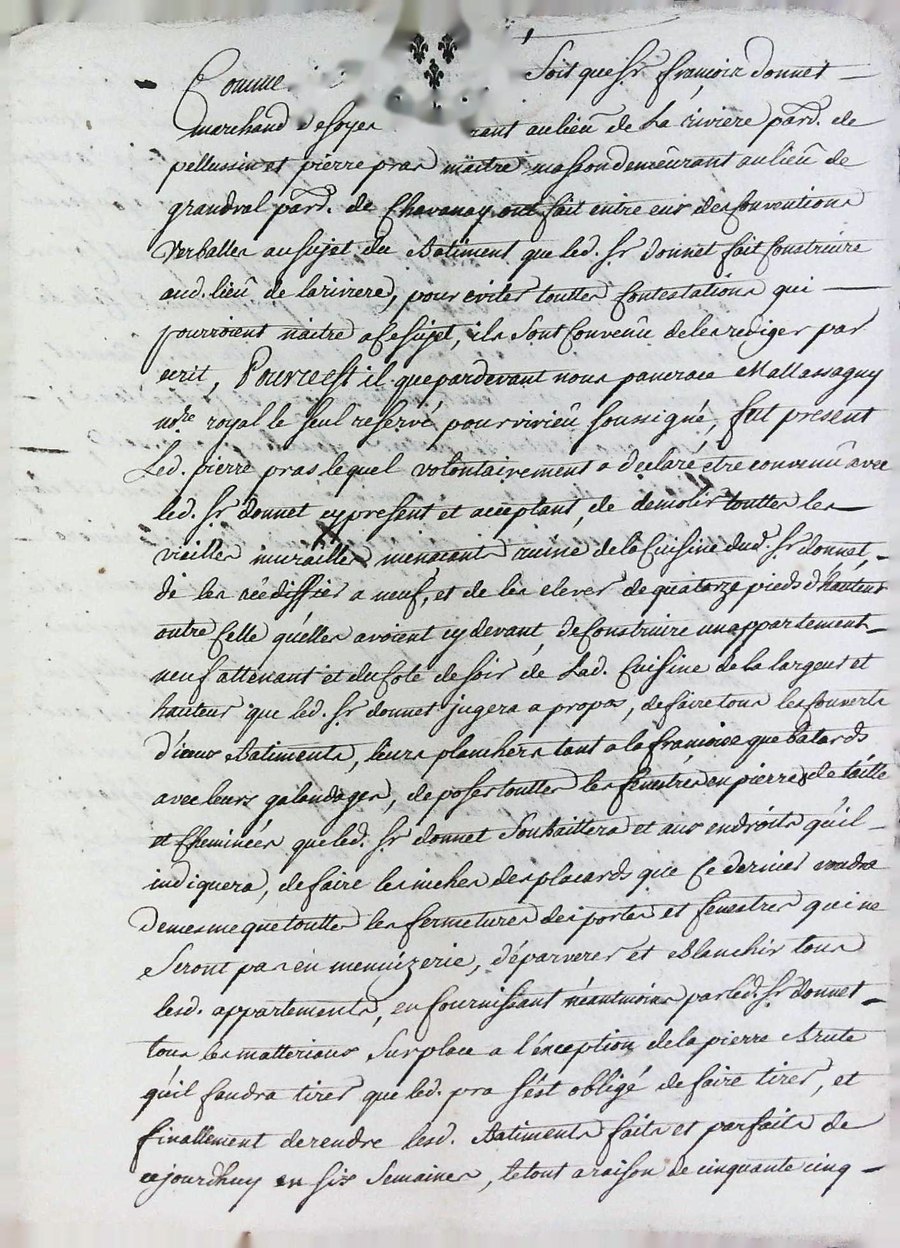 Comme Soit que Sr françois donnet
marchand desoyes rant au lieû de La riviere parr. de
pellussin et pierre pras maître masson demeûrant au lieû de
grandval parr. de Chavanay ont fait entre eux des Conventions
Verballes au sujet du Batiment que led. Sr donnet fait Construire
aud. lieû de lariviere, pour eviter touttes Contestations qui
pourroient naitre a Ce sujet, ils sont Convenû de les rediger par
ecrit, Pource est il que pardevant nous pancrace Mallassagny
nore royal le seul reservé pour virieû soussigné, fut present
Led. pierre pras lequel volontairement a declaré etre convenû avec
led. Sr donnet cy present et acceptant, de demolir touttes les
vieilles murailles menacant ruine de la Cuisine dud. Sr donnet,
de les réédiffier a neuf, et de les elever de quatorze pieds d'hauteur
outre Celle qu'elles avoient cy devant, de Construire un appartement
neuf attenant et du Coté de soir de Lad. Cuisine de la largeur et
hauteur que led. Sr donnet jugera a propos, de faire tous les Couverts
d'iceux Batiments, leurs planchers tant a la françoise que batards
avec leurs galandages, de poser touttes les fenêtres en pierre de taille
et Cheminées que led. Sr donnet Souhaittera et aux endroits qu'il
indiquera, de faire les niches des placards que Ce dernier voudra
demesme que touttes les fermetures des portes et fenestres qui ne
Seront pas en menuizerie, d'éparverer et Blanchir tous
lesd. appartements, en fournissant néantmoins par led. Sr donnet
tous les matteriaux sur place a l'éxception de la pierre Brute
qu'il faudra tirer que led. pra s'ést obligé de faire tirer, et
finallement de rendre lesd. Batiments faits et parfaits de
cejourdhuy en six Semaines, le tout a raison de cinquante cinq